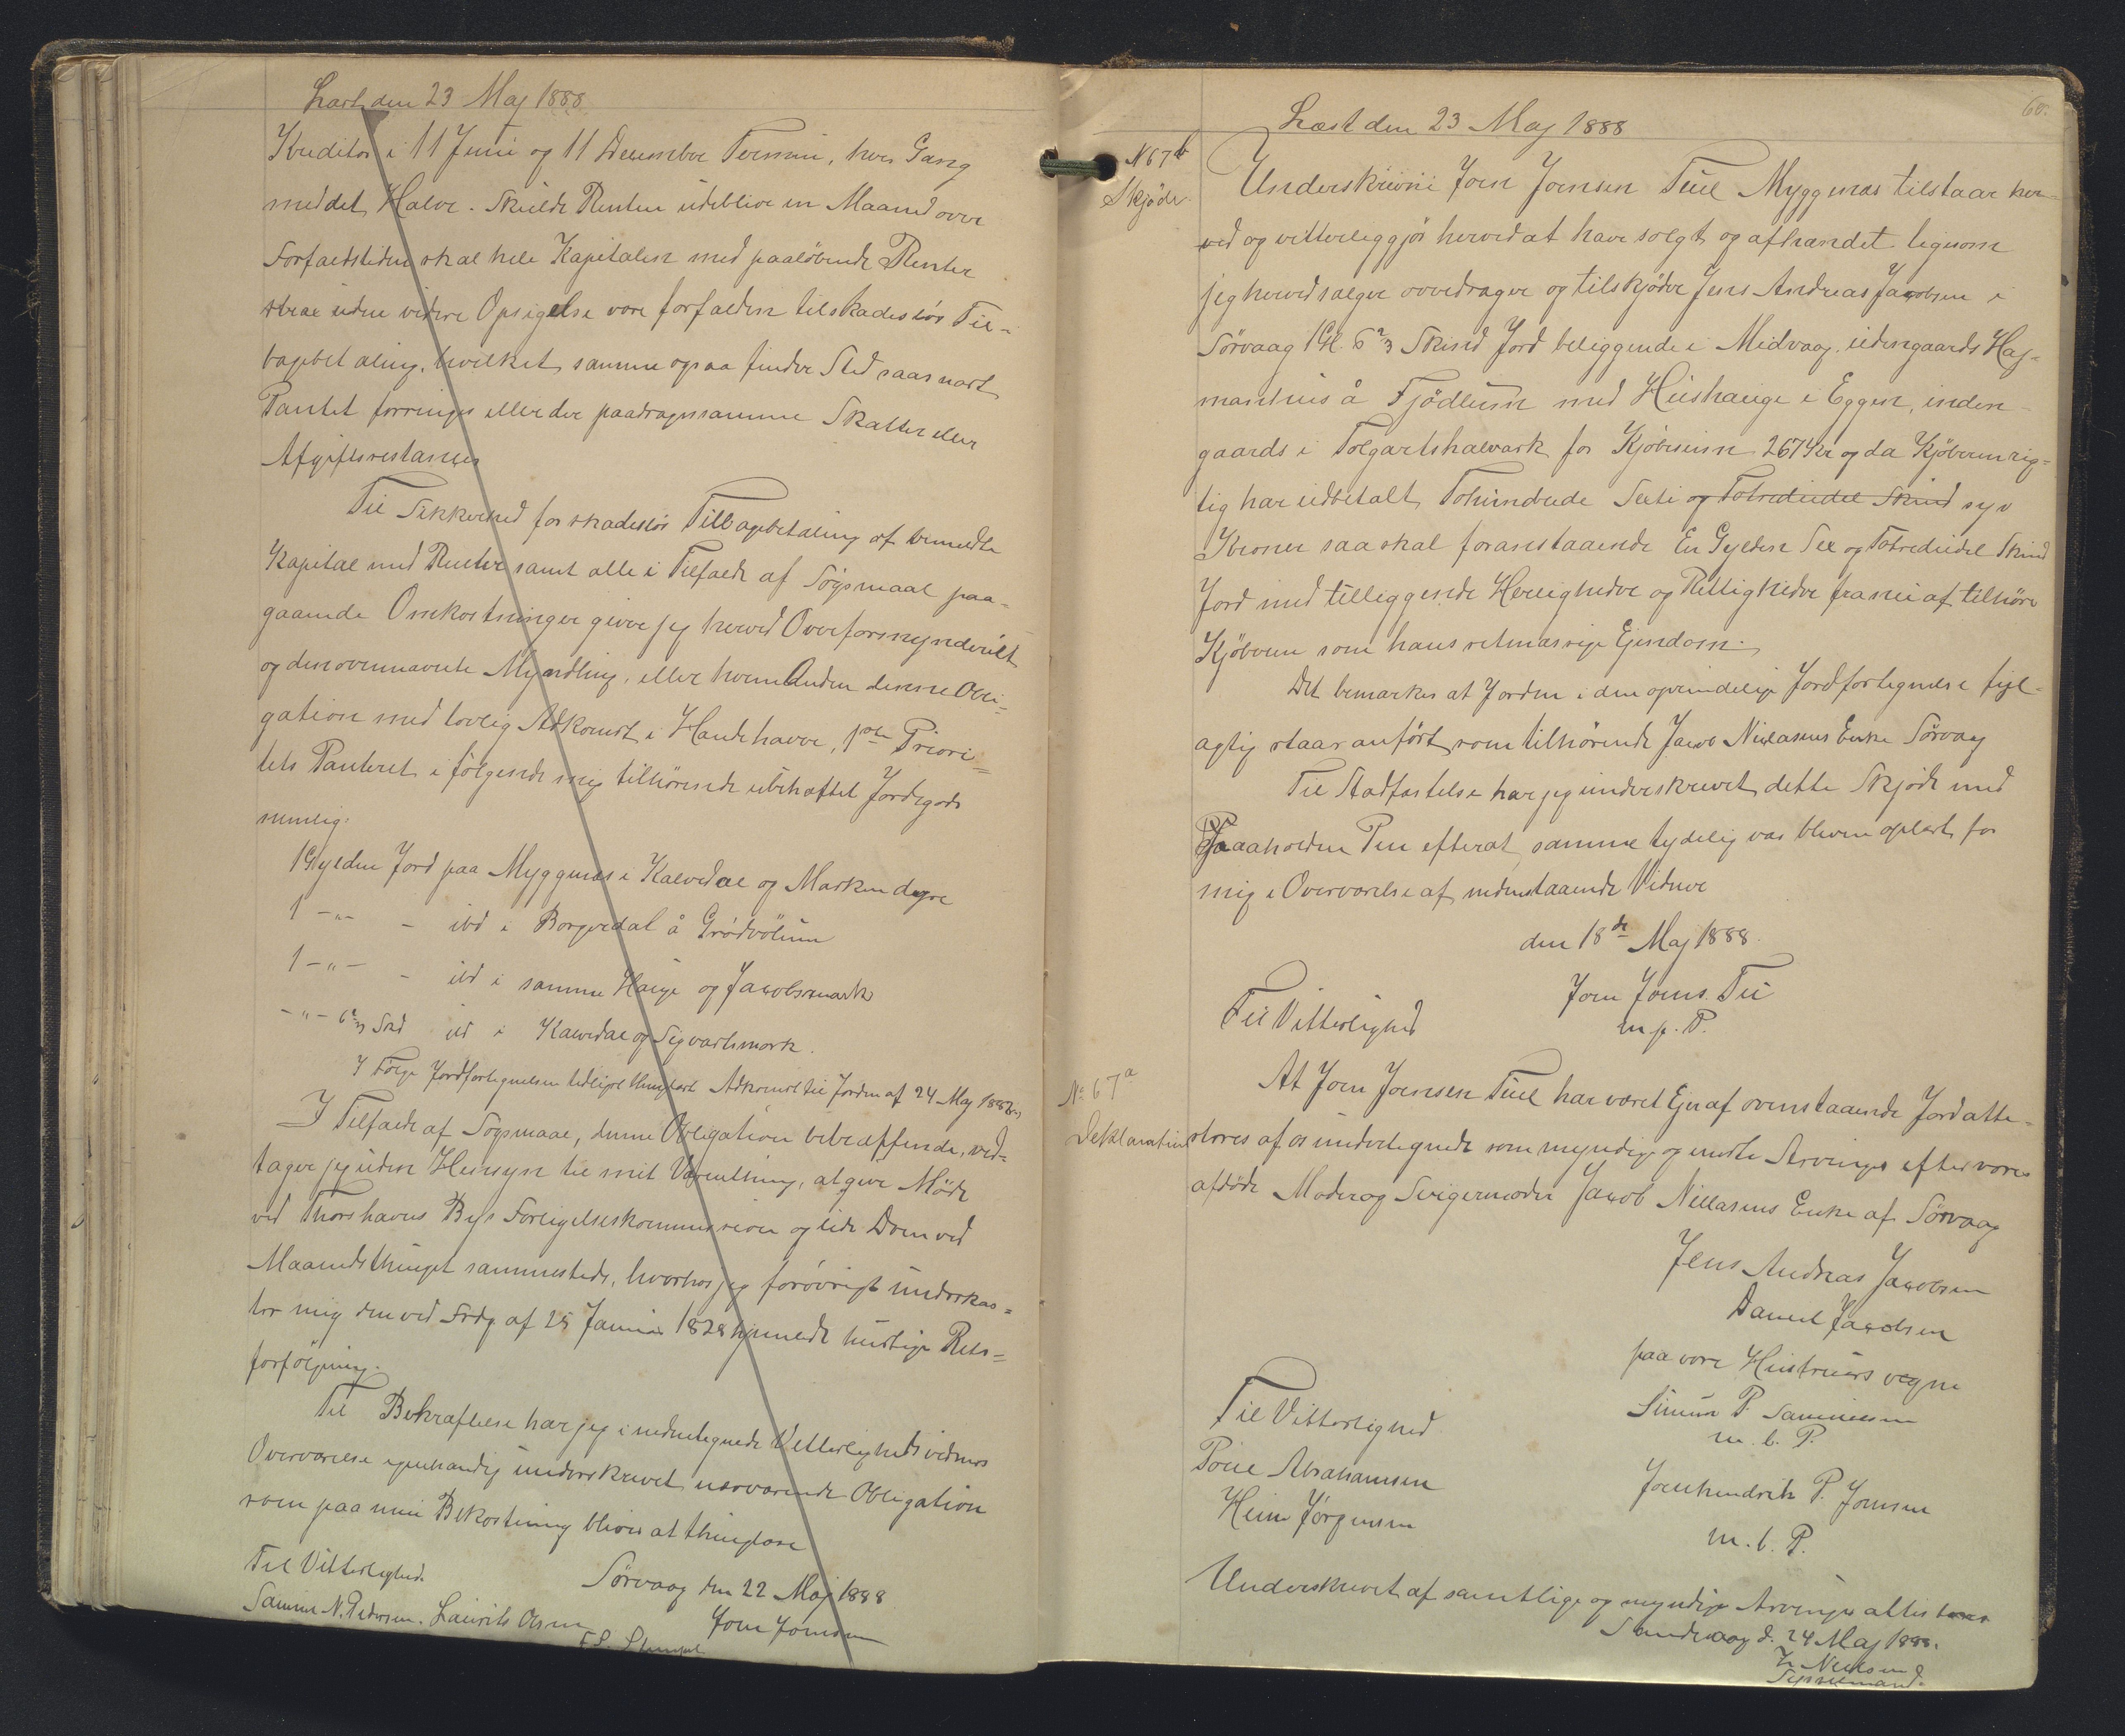 Læst den 23 Maj 1888.
Kreditor i 11 Juni og 11 December Termin, hver Gang
med det Halve. Skulde Renten udeblive en Maaned over
Forfaldstiden skal hele Kapitalen med paaløbende Renter
strax uden videre Opsigelse være forfalden til skadesløs Til-
bagebetaling, hvilket samme ogsaa finder Sted saasnart
Pantet forringes eller der paadrages samme Skatter eller
Afgiftsrestancer
Til Sikkerhed for skadesløs Tilbagebetaling af bemeldte
Kapital med Renter samt alle i Tilfælde af Søgsmaal paa-
gaaende Omkostninger giver jeg herved Overformynderiet
og den ovennævnte Myndling, eller hvem Anden denne Obli-
gation med lovlig Adkomst i Hænde haver, 1ste Priori-
tets Panteret i følgende mig tilhørende ubehæftet Jordegods
nemlig:
1 Gylden Jord paa Myggenæs i Kalvedal og Marken dygre
1 -"- - ibd i Borgvedal å Grødvölum
1 -"- - ibd i samme Hauge og Jacobsmark
-"- 6 2/3 Skd ibd i Kalvedal og Sigvartsmork.
I Følge Jordfortegnelsen tillige thinglæst Adkomst til Jorden af 24 Maj 1882
I Tilfælde af Søgsmaal, denne Obligation betræffende, ved-
tager jeg uden Hensyn til mit Værnething, at give Møde
ved Thorshavns Byes Forligelseskommission og lide Dom ved
Maanedsthinget sammesteds, hvorhos jeg forøvrigt underkas-
ter mig den ved Frdg af 25 Januar 1828 hjemlede hurtige Rets-
forfølgning.
Til Bekræftelse har jeg i nedentegnede Vitterlighedsvidners
Overværelse egenhændig underskrevet nærværende Obligation
som paa min Bekostning bliver at thinglæse
Sørvaag den 22 Maj 1888
Til Vitterlighed.
Joen Joensen
Samuel N. Pedersen. Laurits Olsen
60.
Læst den 23 Maj 1888
N 67 b
Skjøde.
Underskrevne Joen Joensen Tuel Myggenæs tilstaar her-
ved og vitterliggjør herved at have solgt og afhændet ligesom
jeg herved sælger overdrager og tilskjøder Jens Andreas Jacobsen i
Sörvaag 1 Gl. 6 2/3 Skind Jord beliggende i Midvaag. udengaards Haj-
manshus å Fjödlum med Hushauge i Eggen, inden-
gaards i Tolgartshalvark for Kjöbesum 267 Kr og da Kjøberen rig-
tig har udbetalt Tohundrede Seksti og Totrediedel Skind syv
Kroner saa skal foranstaaende En Gylden Sex og Totrediedel Skind
Jord med tilleggende Herligheder og Rettigheder fra nu af tilhøre
Kjöberen som hans retmæssige Ejendom.
Det bemærkes at Jorden i den oprindelige Jordfortegnelse fejl-
agtig staar anført som tilhørende Jacob Niclasens Enke Sörvaag
Til Stadfæstelse har jeg underskrevet dette Skjøde med
Paaholden Pen efterat samme tydelig var bleven oplæst for
mig i Overværelse af nedenstaaende Vidner
den 18de Maj 1888.
Joen Joens. Tu
m. p. P.
Til Vitterlighed
No 67 a
Deklaration
At Joen Joensen Tuel har været Ejer af ovenstaaende Jord atte-
steres af os undertegnede som myndige og eneste Arvinger efter vores
afdøde Moder og Svigermoder Jacob Niclasens Enke af Sørvaag
Jens Andreas Jacobsen
Daniel Jacobsen
paa vore Hustruers vegne
Simun P. Samuelsen
m. b. P.
Joenhendrik P. Joensen
m. b. P.
Til Vitterlighed
Poul Abrahamsen
Heine Jörgensen
Underskrevet af samtlige og myndige Arvinger attesteres
Sandevaag d. 24 Maj 1888.
Nielsen
Sysselmand.